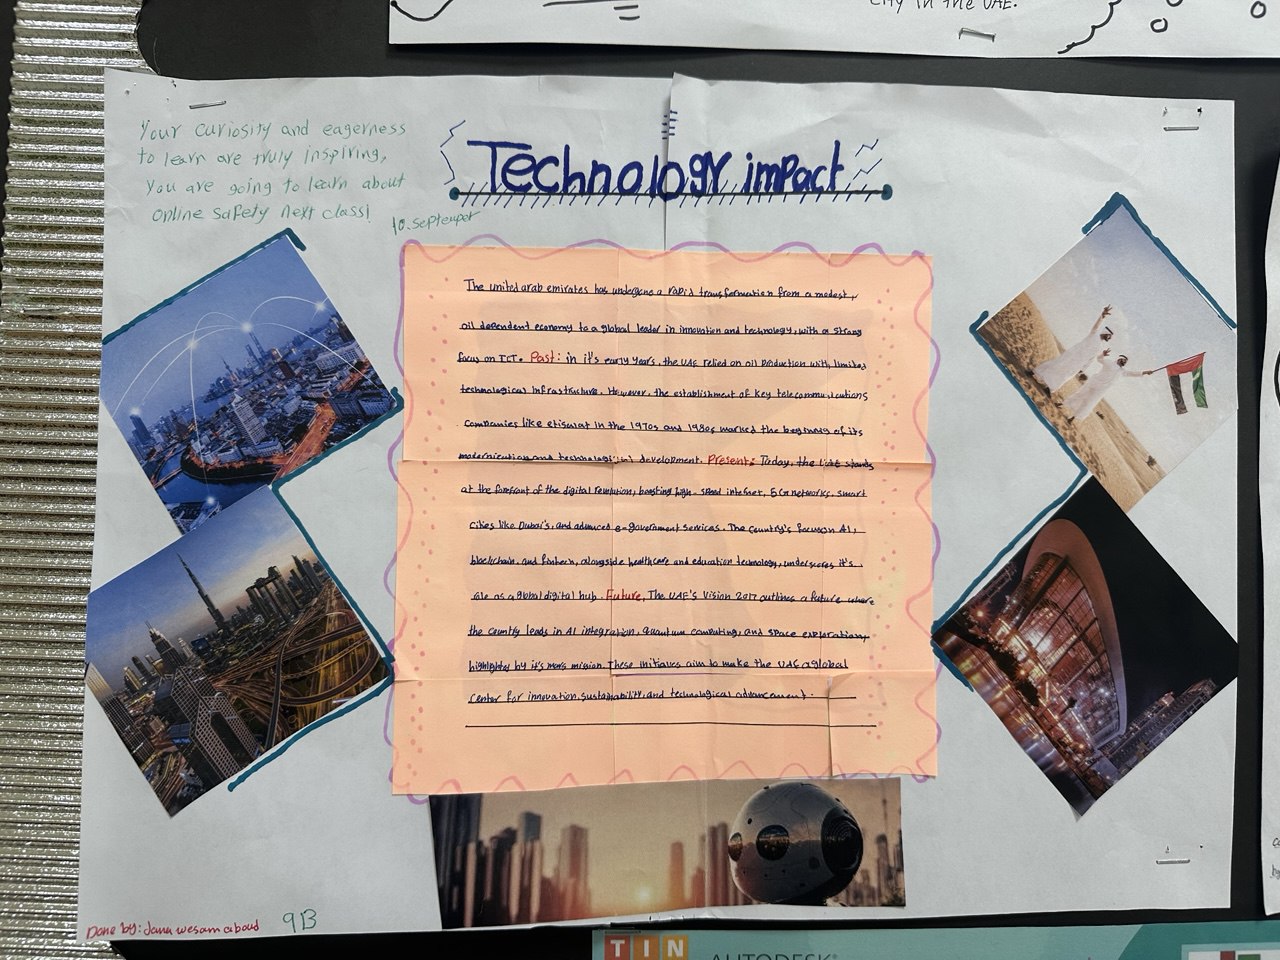 city in the UAE.
Your curiosity and eagerness
to learn are truly inspiring,
you are going to learn about
online safety next class!
10.septenper
Technology impact
The united arab emirates has undergone a rapid transformation from a modest,
oil dependent economy to a global leader in innovation and technology, with a strong
focus on ICT. Past: in it's early years, the UAE relied on oil production with limited
technological infrastructure. However, the establishment of key telecommunications
companies like etisalat in the 1970s and 1980s marked the beginning of its
modernization and technological development. Present: Today, the UAE stands
at the forefront of the digital revolution, boasting high-speed internet, 5G networks, smart
cities like Dubai's, and advanced e-government services. The country's focus on AI,
blockchain, and fintech, alongside healthcare and education technology, underscores it's
role as a global digital hub. Future, The UAE's Vision outlines a future where
the country leads in AI integration, quantum computing, and space exploration,
highlighted by it's mars mission. These initiaves aim to make the UAE a global
center for innovation, sustainability, and technological advancement.
Done by: Jana wesam aboud
9B
TIN
AUTODESK